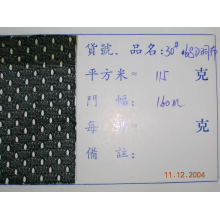 貨號、品名:30# 
平方米≈ 115 克
門 幅: 160cm
每 克
備 註:
11.12.2004